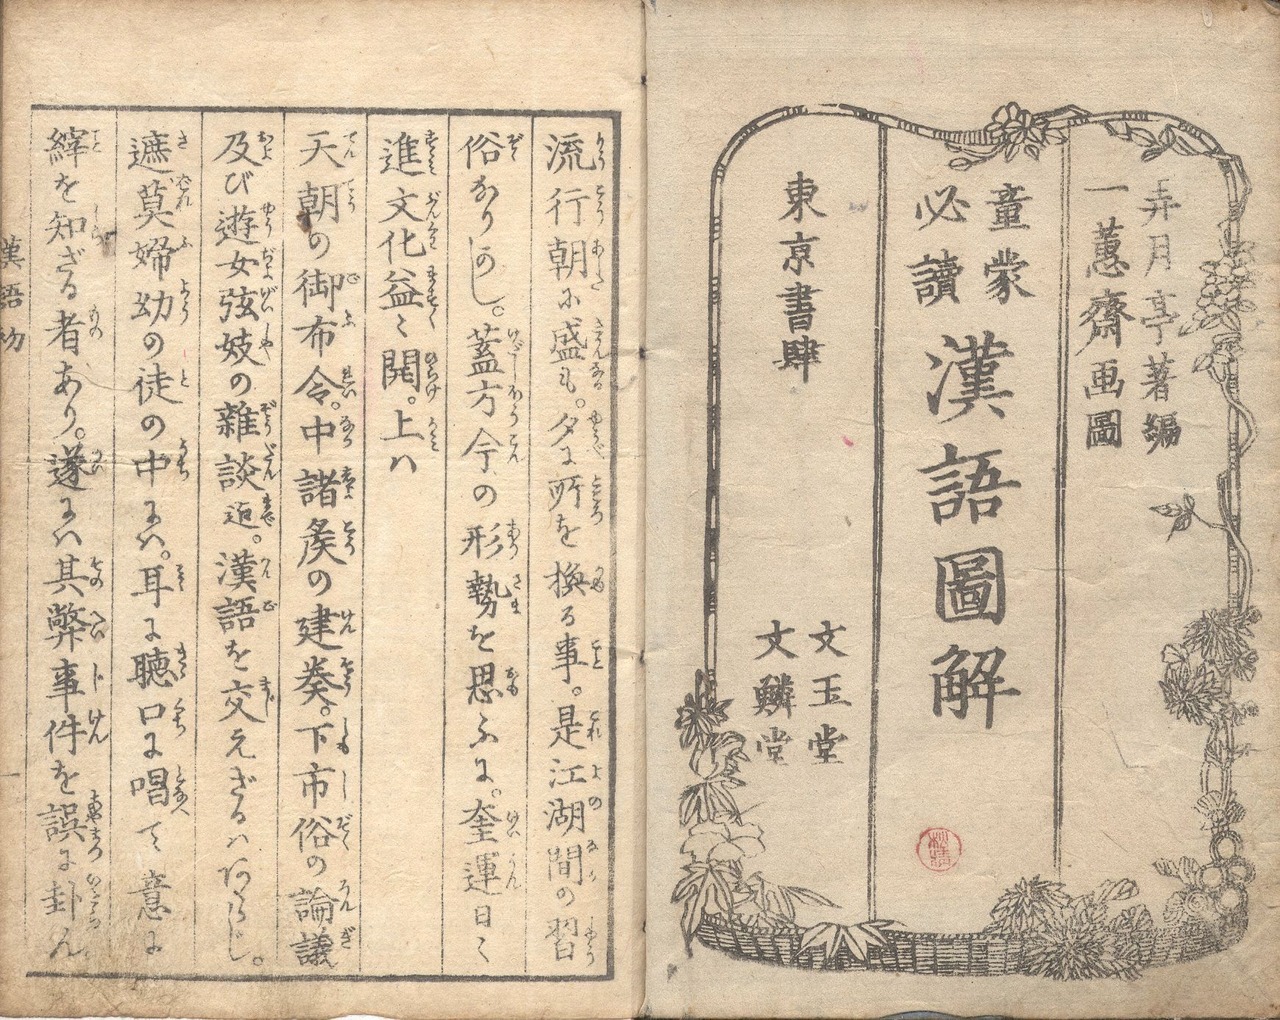 弄月亭著編
一蕙齋画圖
童蒙
必讀
漢語圖解
東京書肆
文玉堂
文鱗堂
流行朝に盛も。夕に所を換る事。是江湖間の習
俗なりかし。蓋方今の形勢を思ふに。奎運日〻
進文化益〻開。上ハ
天朝の御布令。中諸矦の建奏。下市俗の論議
及び遊女弦妓の雜談迄。漢語を交えざるハあらじ。
遮莫婦幼の徒の中にハ。耳に聽口に唱て意に
繹を知ざる者あり。遂にハ其弊事件を誤に卦らん
漢語
一